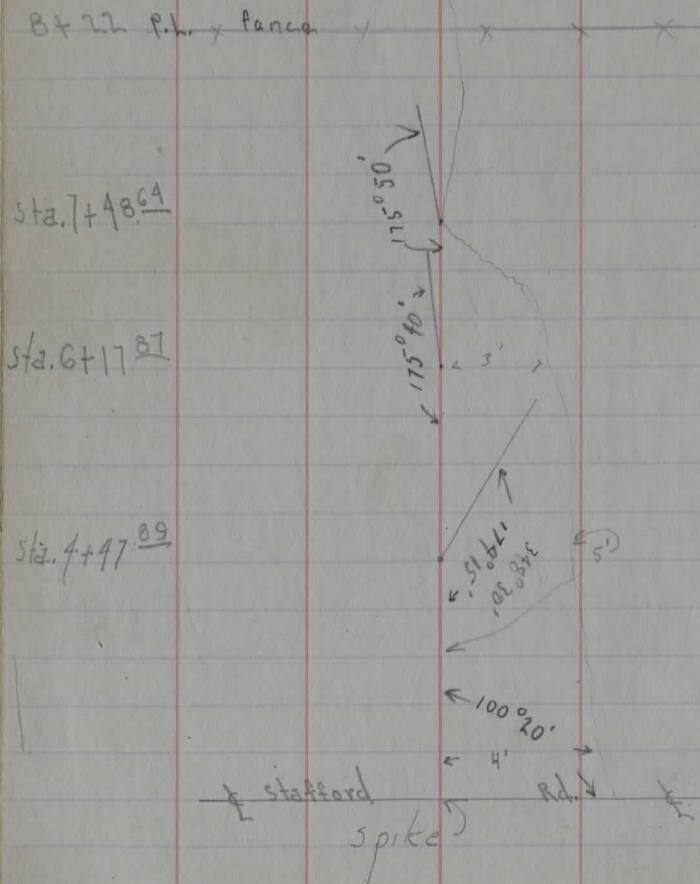 8+22 P.L. fence
175°50'
Sta. 7+48 64
175°40'
Sta. 6+17 87
3'
Sta. 4+47 89
174°15'
348°30'
5'
100°20'
4'
℄ Stafford Rd. ℄
Spike